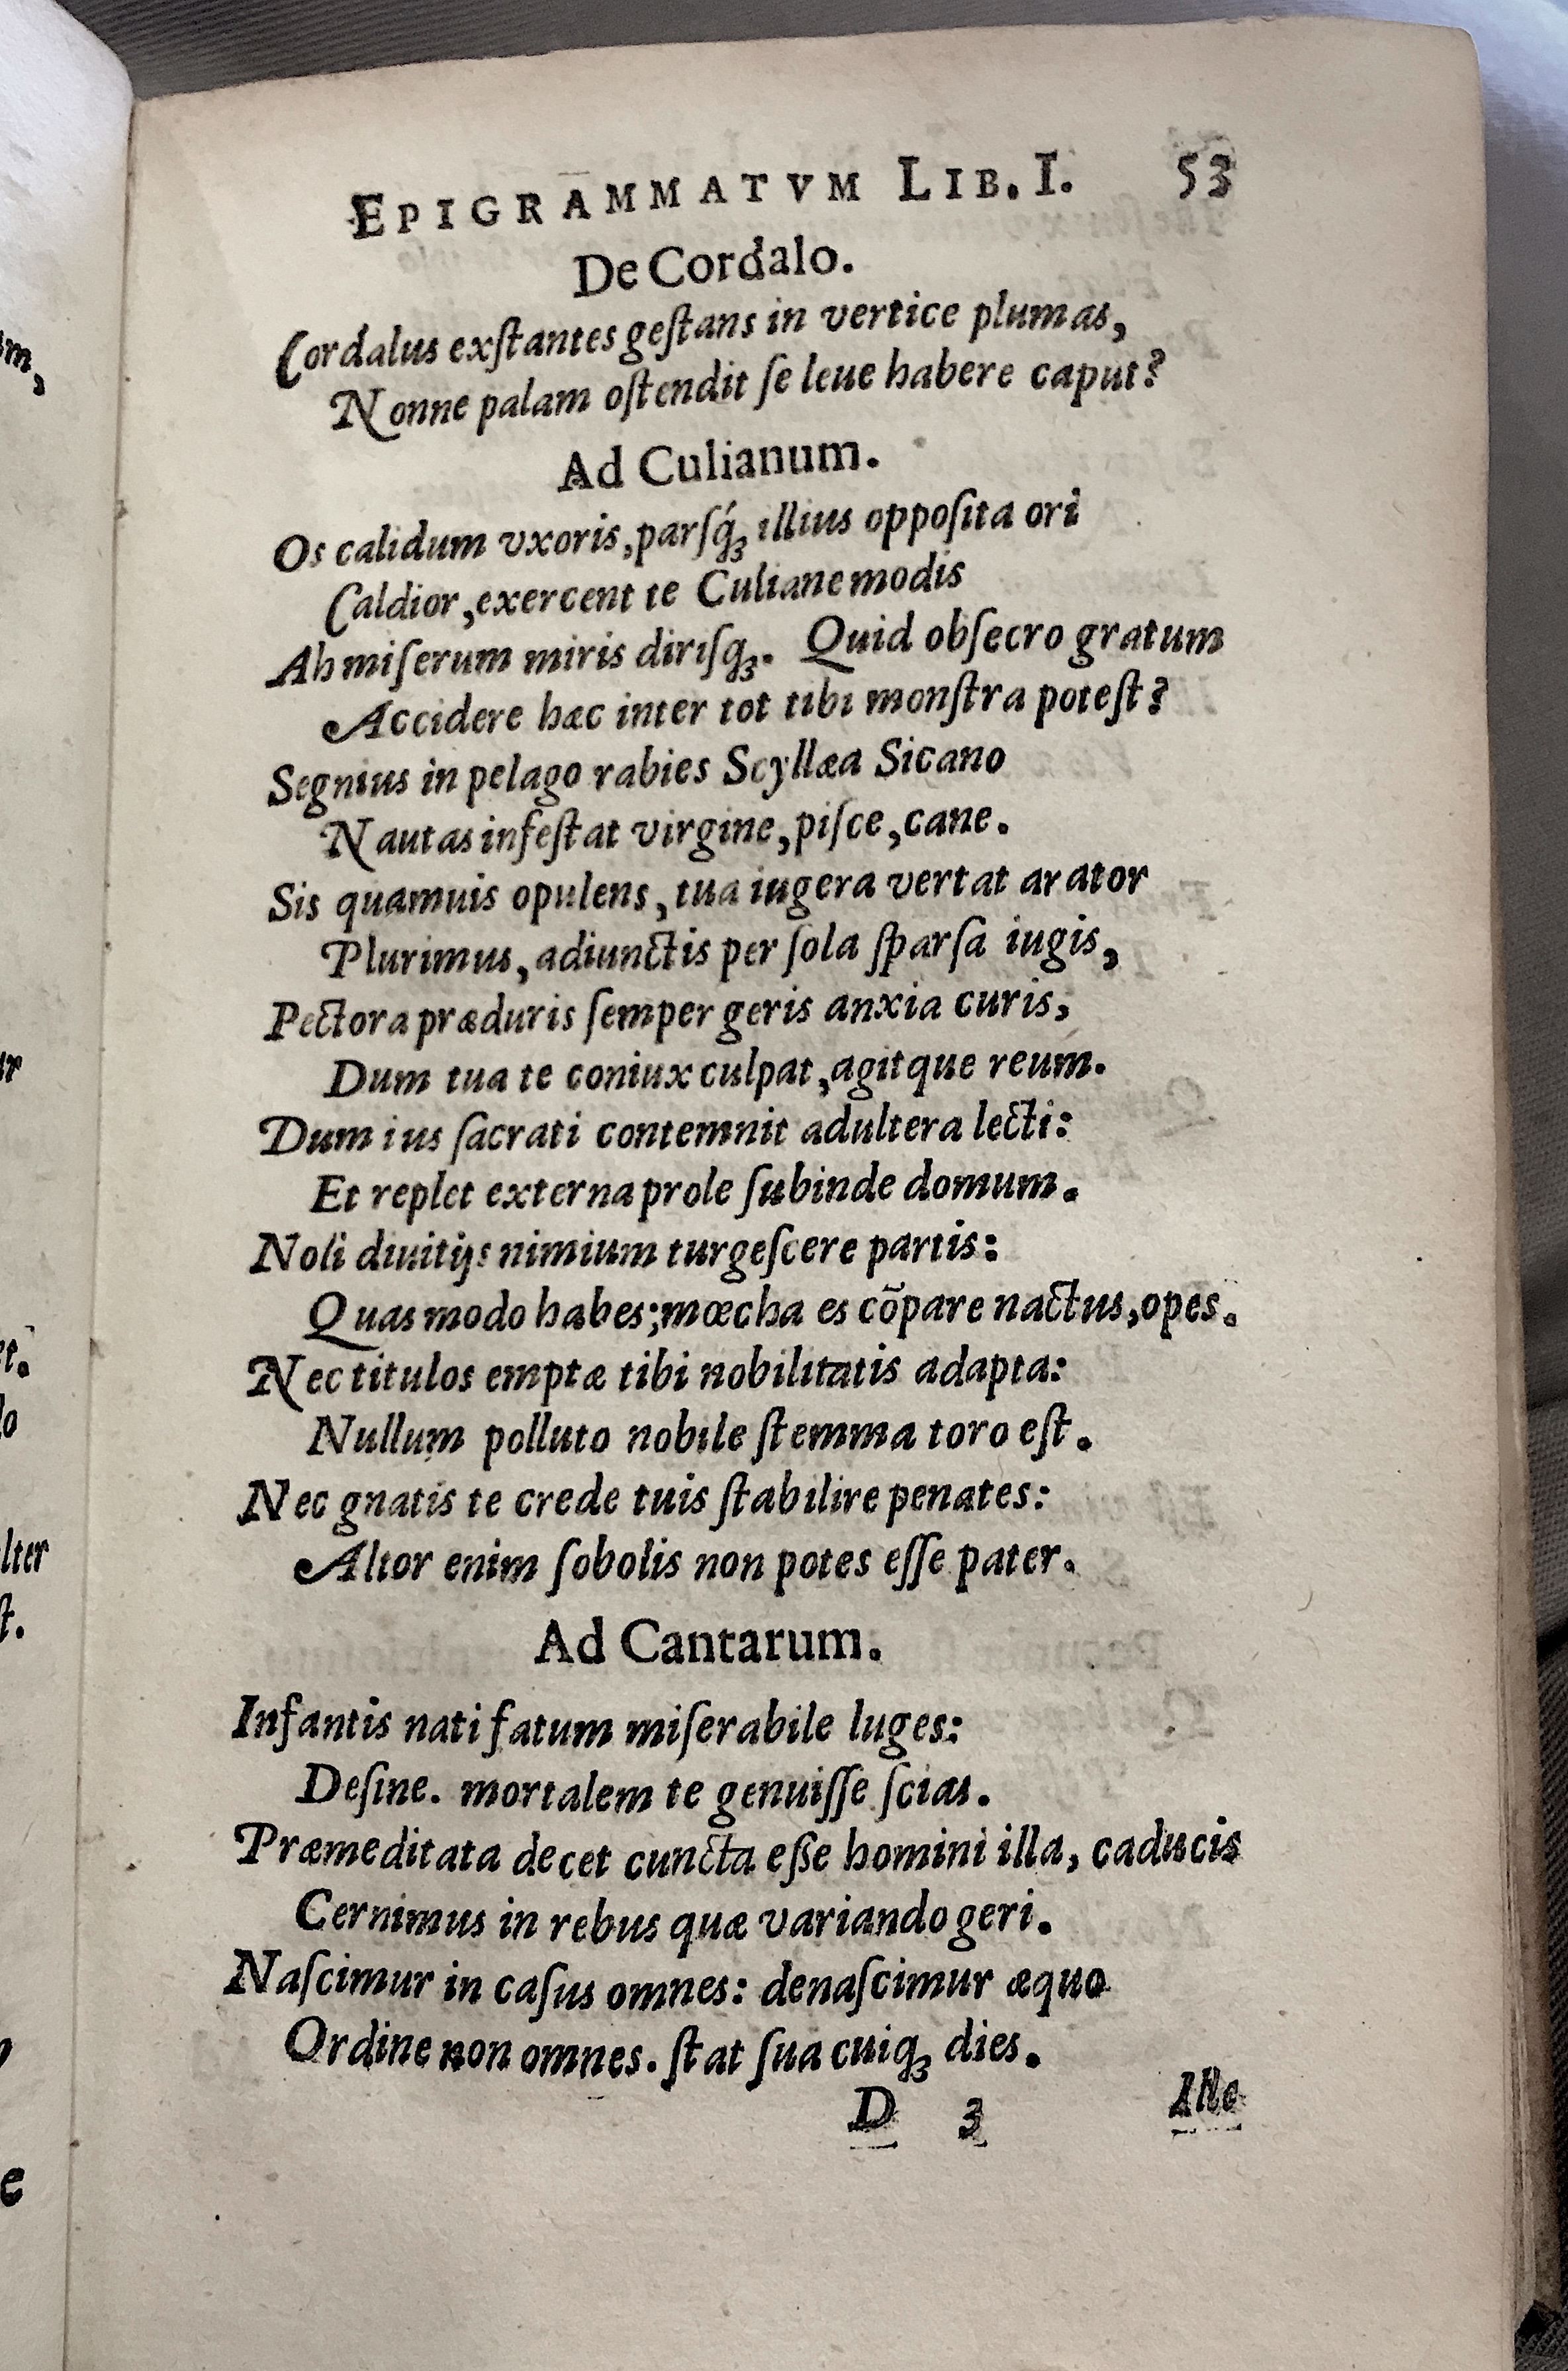 EPIGRAMMATVM LIB. I. 53
De Cordalo.
Cordalus exſtantes geſtans in vertice plumas,
Nonne palam oſtendit ſe leue habere caput?
Ad Culianum.
Os calidum vxoris, parſq́ꝫ illius oppoſita ori
Caldior, exercent te Culiane modis
Ah miſerum miris diriſqꝫ. Quid obſecro gratum
Accidere hæc inter tot tibi monſtra poteſt?
Segnius in pelago rabies Scyllæa Sicano
Nautas infeſtat virgine, piſce, cane.
Sis quamuis opulens, tua iugera vertat arator
Plurimus, adiunctis per ſola ſparſa iugis,
Pectora præduris ſemper geris anxia curis,
Dum tua te coniux culpat, agitque reum.
Dum ius ſacrati contemnit adultera lecti:
Et replet externa prole ſubinde domum.
Noli diuitijs nimium turgeſcere partis:
Quas modo habes; mœcha es cõpare nactus, opes.
Nec titulos emptæ tibi nobilitatis adapta:
Nullum polluto nobile ſtemma toro eſt.
Nec gnatis te crede tuis ſtabilire penates:
Altor enim ſobolis non potes eſſe pater.
Ad Cantarum.
Infantis nati fatum miſerabile luges:
Deſine. mortalem te genuiſſe ſcias.
Præmeditata decet cuncta eſse homini illa, caducis
Cernimus in rebus quæ variando geri.
Naſcimur in caſus omnes: denaſcimur æquo
Ordine non omnes. ſtat ſua cuiqꝫ dies.
D 3 Ille